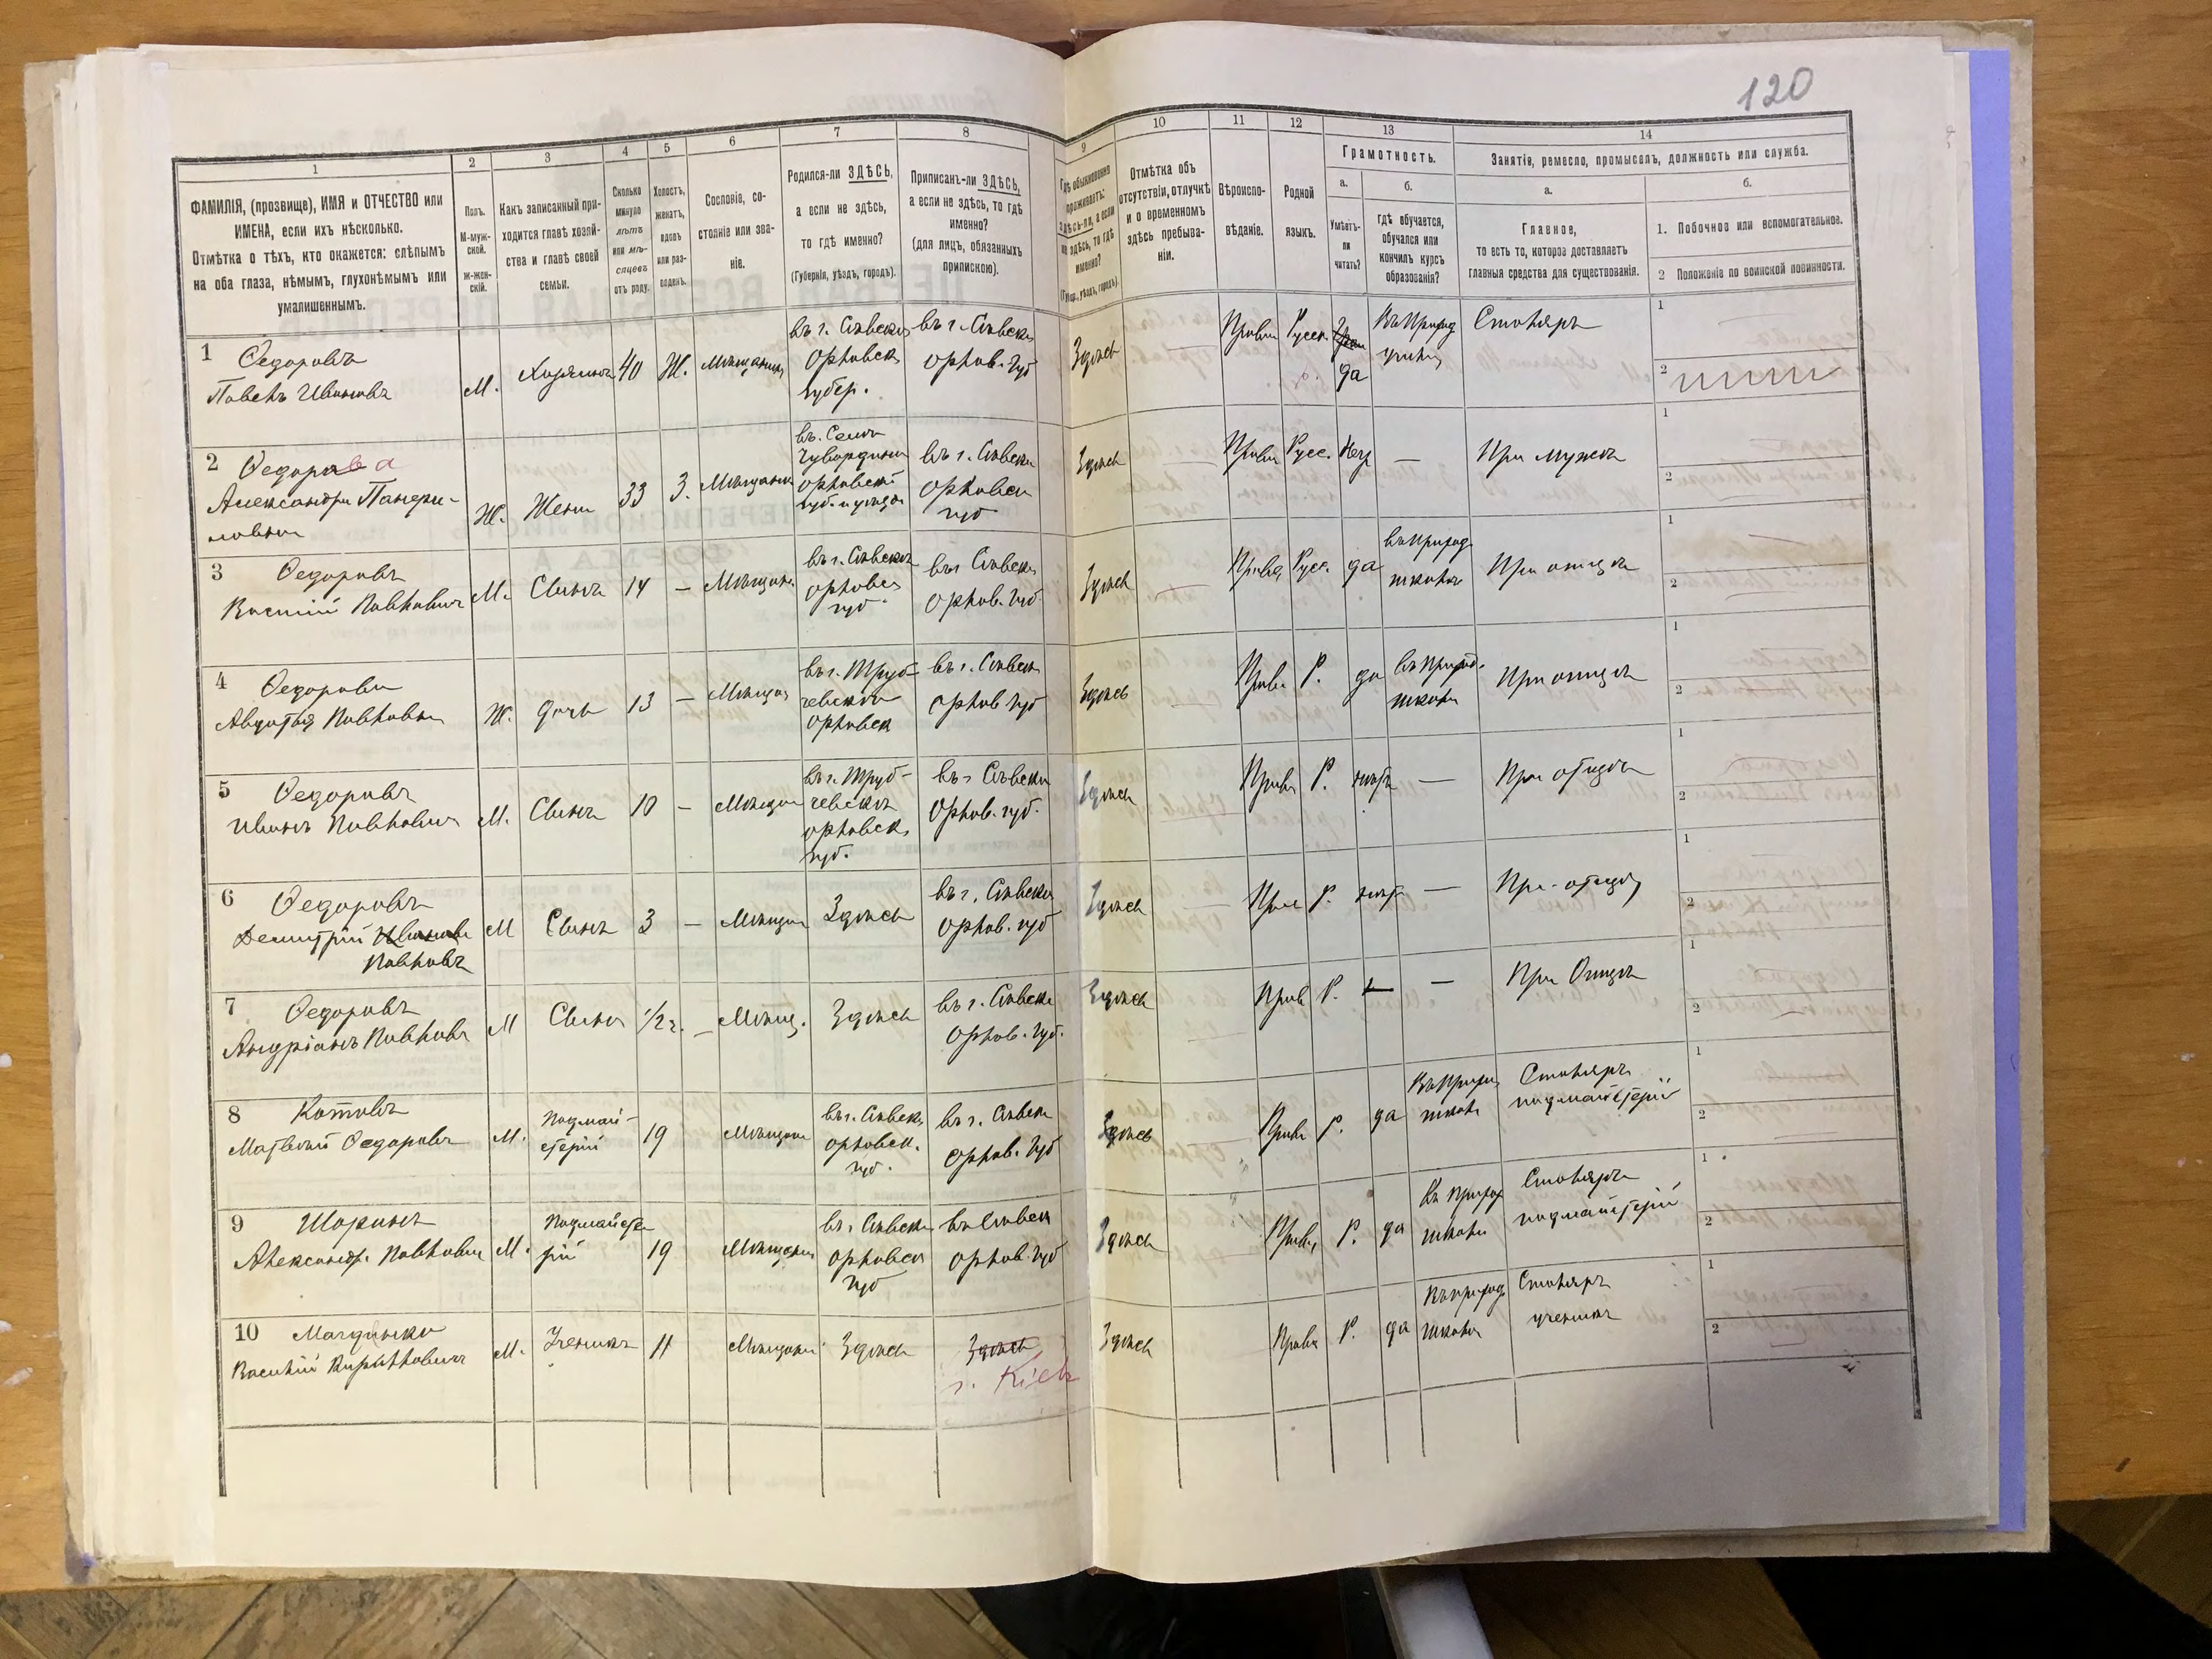 120
1
2
3
4
5
6
7
8
9
10
11
12
13
14
ФАМИЛІЯ, (прозвище), ИМЯ и ОТЧЕСТВО или
ИМЕНА, если ихъ нѣсколько.
Отмѣтка о тѣхъ, кто окажется: слѣпымъ
на оба глаза, нѣмымъ, глухонѣмымъ или
умалишеннымъ.
Полъ.
М-муж-
ской.
Ж-жен-
скій.
Какъ записанный при-
ходится главѣ хозяй-
ства и главѣ своей
семьи.
Сколько
минуло
лѣтъ
или мѣ-
сяцевъ
отъ роду.
Холостъ,
женатъ,
вдовъ
или раз-
веденъ.
Сословіе, со-
стояніе или зва-
ніе.
Родился-ли ЗДѢСЬ,
а если не здѣсь,
то гдѣ именно?
(Губернія, уѣздъ, городъ).
Приписанъ-ли ЗДѢСЬ,
а если не здѣсь, то гдѣ
именно?
(для лицъ, обязанныхъ
припискою).
Гдѣ обыкновенно
проживаетъ:
здѣсь-ли, а если
не здѣсь, то гдѣ
именно?
(Губер., уѣздъ, городъ).
Отмѣтка объ
отсутствіи, отлучкѣ
и о временномъ
здѣсь пребыва-
ніи.
Вѣроиспо-
вѣданіе.
Родной
языкъ.
Грамотность.
а.
Умѣетъ-
ли
читать?
б.
гдѣ обучается,
обучался или
кончилъ курсъ
образованія?
Занятіе, ремесло, промыселъ, должность или служба.
а.
Главное,
то есть то, которое доставляетъ
главныя средства для существованія.
б.
1. Побочное или вспомогательное.
2 Положеніе по воинской повинности.
1 Федоровъ
Павелъ Ивановъ
М.
Хозяинъ
40
Ж.
Мѣщанинъ
въ г. Сѣвскѣ
Орловск
губер.
въ г. Сѣвскѣ
Орлов. губ
Здѣсь
Правос
Русск
да
Въ Приход
училищ
Столяръ
1
2
2 Федорова
Александра
Ж.
Жена
33
З.
Мѣщанка
въ. Селѣ
Орловской
губ. и уезда
въ г. Сѣвскѣ
Орловск
губ
Здѣсь
Правос
Русс.
Негр
—
При мужѣ
1
2
3 Федоровъ
Василій Павловичъ
М.
Сынъ
14
—
Мѣщани
въ г. Сѣвскѣ
Орловск
губ.
въ г Сѣвскѣ
Орлов. губ.
Здѣсь
Правос
Русс.
да
въ приход.
школѣ
При отцѣ
1
2
4 Федорова
Авдотья Павловна
Ж.
Дочь
13
—
Мѣщан
въ г. Труб-
чевскѣ
Орловск
въ г. Сѣвск
Орлов губ
Здѣсь
Прав
Р.
да
въ приход.
школѣ
При отцѣ
1
2
5 Федоровъ
Иванъ Павловичъ
М.
Сынъ
10
—
Мѣщан
въ г. Труб-
чевскѣ
орловск.
губ.
въ г Сѣвскѣ
Орлов. губ.
Здѣсь
Прав
Р.
нѣтъ
—
При отцѣ
1
2
6 Федоровъ
Дмитрій Иванов
Павловъ
М
Сынъ
3
—
Мѣщан
Здѣсь
въ г. Сѣвскѣ
Орлов. губ
Здѣсь
Прав
Р.
нѣтъ
—
При отцѣ
1
2
7 Федоровъ
Андріанъ Павловъ
М
Сынъ
1/2 г.
—
Мѣщ.
Здѣсь
въ г. Сѣвскѣ
Орлов. губ.
Здѣсь
Прав
Р.
—
—
При Отцѣ
1
2
8 Котовъ
Матвей Федоровъ
М.
Подмай-
стерій
19
Мѣщани
въ г. Сѣвск
Орловск.
губ.
въ г. Сѣвск
Орлов. губ
Здѣсь
Прав
Р.
да
Въ Приход
школѣ
Столяръ
подмайстерій
1
2
9 Шоринъ
Александръ Павлович
М.
Подмайсте
рій
19
Мѣщанин
въ г. Сѣвск
Орловск
губ
въ Сѣвск
Орлов. губ
Здѣсь
Прав
Р.
да
Въ приход
школѣ
Столяръ
подмайстерій
1
2
10
Василій
М.
Ученикъ
11
Мѣщани
Здѣсь
Здѣсь
г. Кіевъ
Здѣсь
Прав
Р.
да
Въ приход
школѣ
Столяръ
ученикъ
1
2